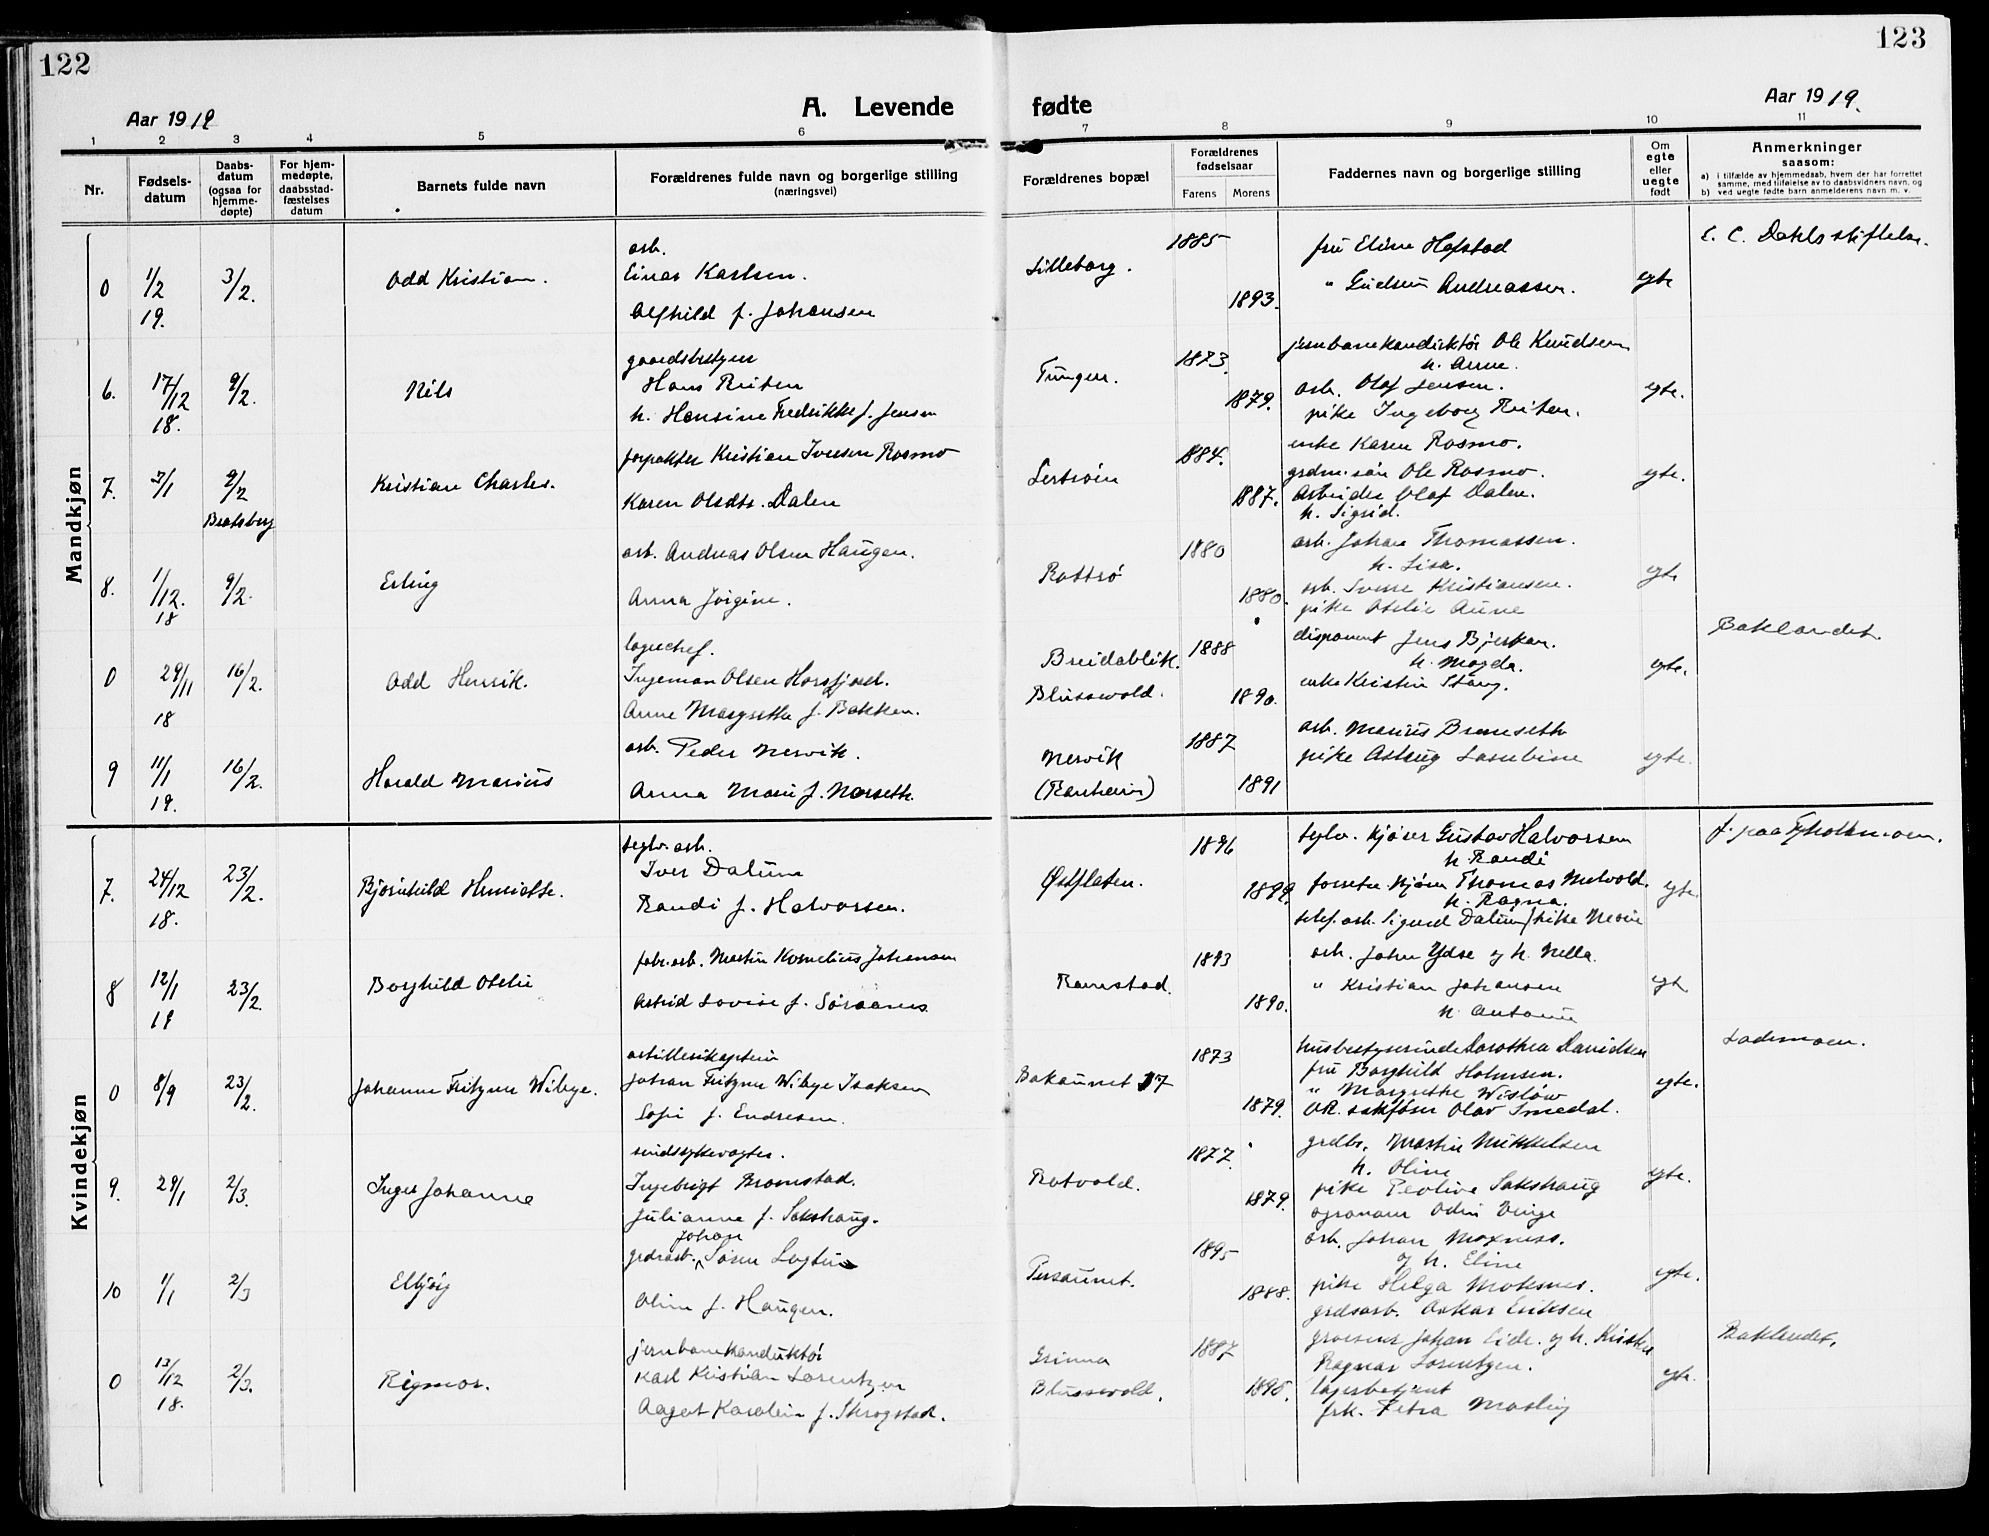 122
123
Aar 1919
A. Levende fødte
Aar 1919.
1 2 3 4 5 6 7 8 9 10 11
Nr.
Fødsels-
datum
Daabs-
datum
(ogsaa for
hjemme-
døpte)
For hjem-
medøpte,
daabsstad-
fæstelses
datum
Barnets fulde navn
Forældrenes fulde navn og borgerlige stilling
(næringsvei)
Forældrenes bopæl
Forældrenes
fødselsaar
Farens Morens
Faddernes navn og borgerlige stilling
Om
egte
eller
uegte
født
Anmerkninger
saasom:
a) i tilfælde av hjemmedaab, hvem der har forrettet
samme, med tilføielse av to daabsvidners navn, og
b) ved uegte fødte barn anmelderens navn m. v.
Mandkjøn
0 1/2 19. 3/2. Odd Kristian.
arb.
Einar Karlsen.
Alfhild f. Johansen
Lilleborg. 1885 1893.
fru Eline Hofstad
" Gudrun Andreassen.
egte
E. C. Dahls stiftelse.
6. 17/12 18. 9/2. Nils
gaardsbestyrer
Hans Reiten
h. Hansine Fredrikke f. Jensen
Tungen. 1873. 1879.
jernbanekonduktør Ole Knudsen
h. Anne.
arb. Olaf Jensen.
pike Ingeborg Reiten.
egte.
7. 3/1 9/2 Bratsberg Kristian Charles.
forpakter Kristian Iversen Rosmo
Karen Olsdtr. Dalen
1884. 1887.
enke Karen Rosmo.
grdm. søn Ole Rosmo.
Arbeider Olaf Dalen.
h. Sigrid.
egte.
8. 1/12. 18 9/2. Erling
arb. Andreas Olsen Haugen.
Anna Jørgine.
Rottrø 1880 1880.
arb. Johan Thomassen.
h. Lisa.
arb. Sverre Kristiansen.
pike Otelie Aune
egte
0 29/11 18 16/2. Odd Henrik.
lagerchef.
Ingeman Olsen Horsfjord.
Anne Margrethe f. Bakken.
Breidablik.
Blussvold.
1888 1890.
disponent Jens Bjerkan.
h. Magda.
enke Kristin Stang.
egte.
Baklandet.
9 11/1 19. 16/2. Harald Marius
arb. Peder Nervik.
Anna Marie f. Norseth.
Nervik
(Ranheim)
1887 1891
arb. Marius Bruneseth
pike Astrug
egte.
Kvindekjøn
7. 24/12 18. 23/2. Bjørnhild Henriette.
teglv. arb.
Iver Dalum
Randi f. Halvorsen.
Østflaten. 1896 1899.
teglv. kjører Gustav Halvorsen
h. Randi
Thomas
h. Ragna.
telef. arb. Sigurd Dalum / pike Marie
egte.
f. paa Tyholtmoen.
8 12/1 19 23/2. Borghild Otelie
fabr. arb. Martin Kornelius Johansen
Astrid Lovise f. Søraanes
Ranestad. 1893 1890.
arb. Johan Ydse og h. Nella.
" Kristian Johansen
h. Antonie
egt.
0 8/9 23/2. Johanne Fritzner Wibye.
artillerikaptein
Johan Fritzner Wibye Isaksen
Sofie f. Endresen.
Bakaunet 17 1873 1879.
husbestyrerinde Dorothea Davidsen
fru Borghild Holmsen.
" Margrethe Wisløw
OR. sakfører Olav Smedal.
egte.
Lademoen.
9. 29/1 2/3. Inger Johanne
sindssykevogter.
Ingebrigt Bromstad.
Julianne f. Sakshaug.
Rotvold. 1877. 1879.
grdbr. Martin Mikkelsen
h. Oline
pike Peoline Sakshaug
agronom Odin Vinge
egte.
10 1/1 2/3 Elbjørg
Johan
grdsarb. Søren Lugtun
Oline f. Haugen.
Persaunet. 1895 1888.
arb. Johan Moxness.
og h. Eline
pike Helga Moksnes.
grdsarb. Oskar Eriksen
egte.
0 13/12 18. 2/3. Rigmor.
jernbanekonduktør
Karl Kristian Lorentzen
Aagot Karolein f. Skrogstad.
Grinna
Blussevold.
1887 1895.
Johan Eide. og h.
Ragnar Lorentzen.
lagerbetjent
frk. Petra Mosling
egte.
Baklandet.